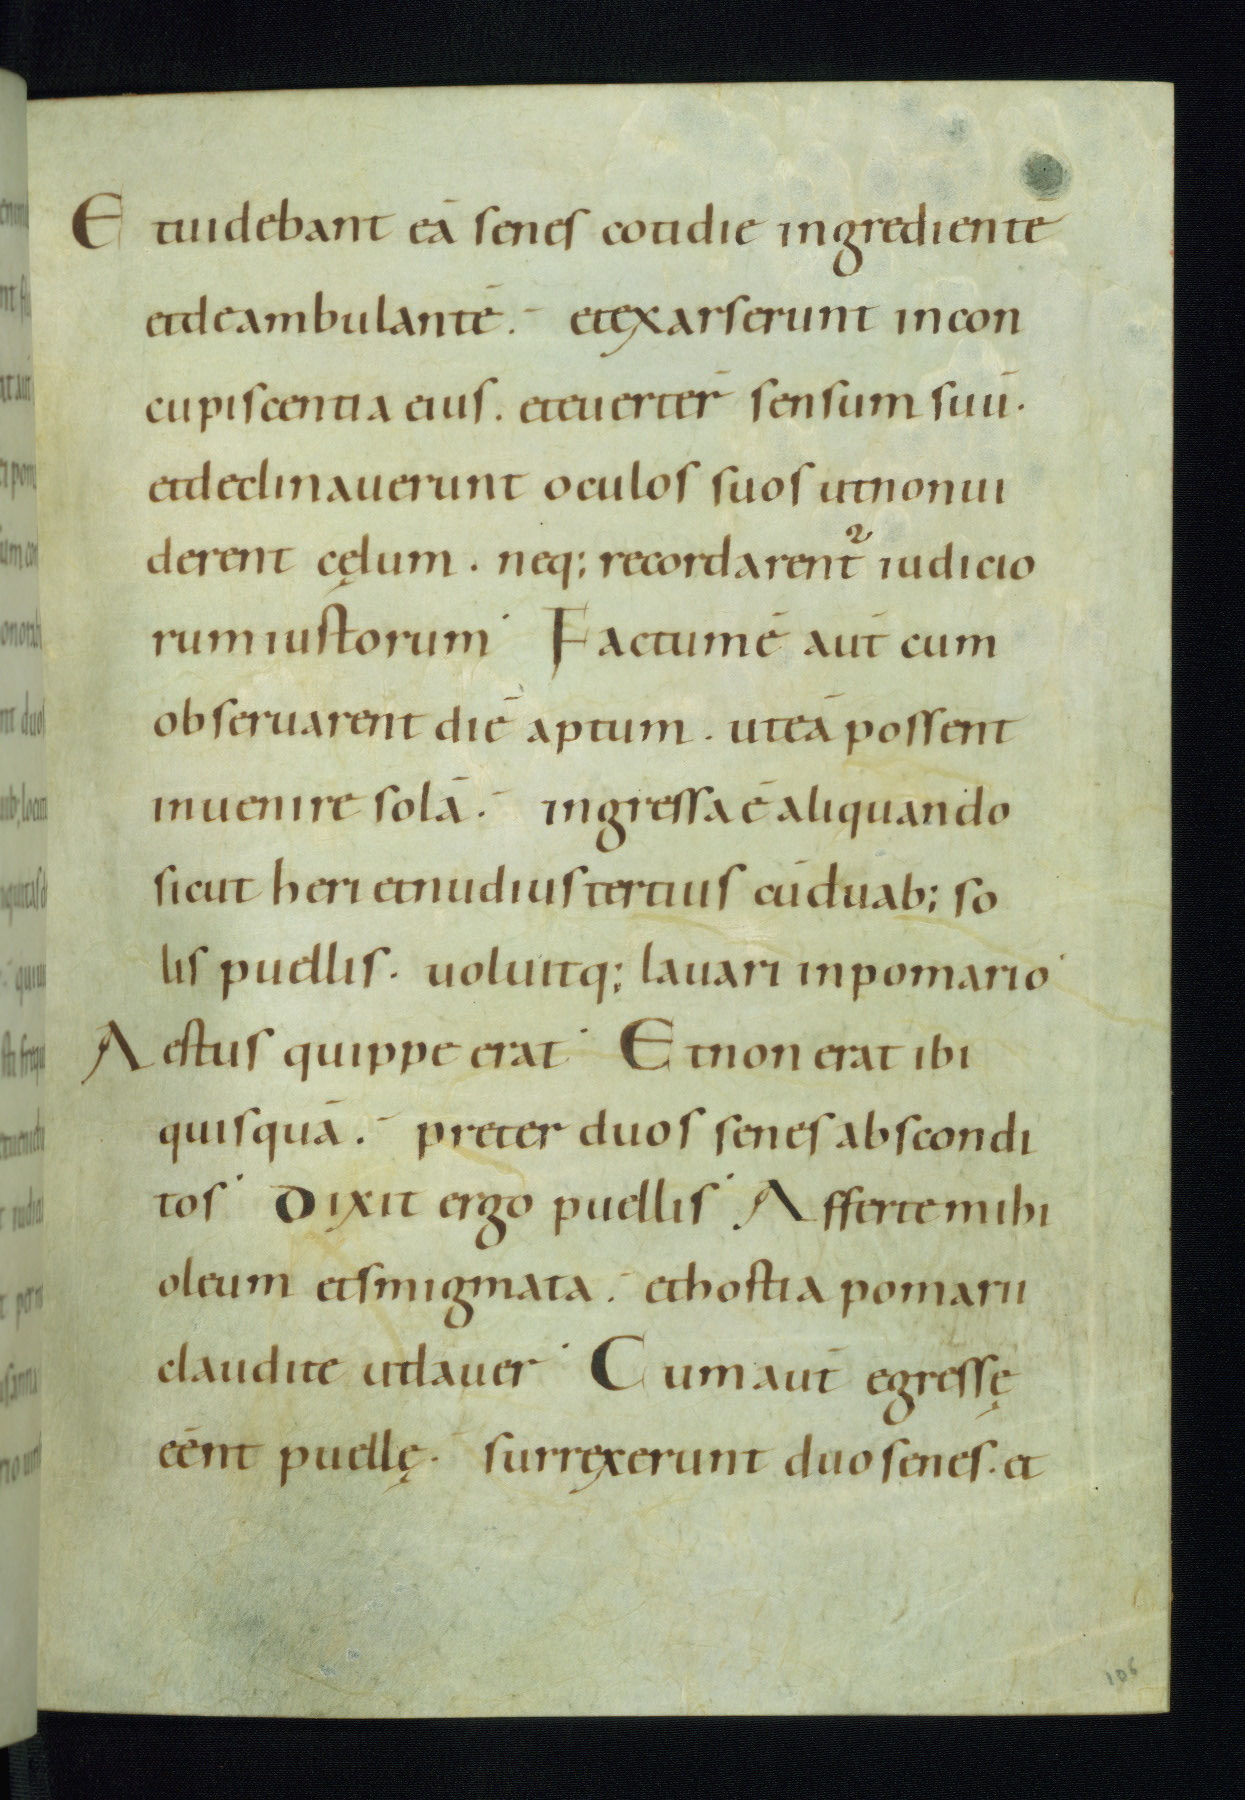 Etuidebant eā senes cotidie ingrediente
etdeambulantē. etexarserunt incon
cupiscentia eius. eteuerter̄ sensum suū.
etdeclinauerunt oculos suos utnonui
derent cęlum. neq; recordarent᷑ iudicio
rum iustorum. Factumē aūt cum
obseruarent diē aptum. uteā possent
inuenire solā. ingressa ē aliquando
sicut heri etnudiustertius cūduab; so
lis puellis. uoluitq; lauari inpomario.
Aestus quippe erat. Etnon erat ibi
quisquā. preter duos senes abscondi
tos. Dixit ergo puellis. Affertemihi
oleum etsmigmata. ethostia pomarii
claudite utlauer. Cum aūt egressę
eēnt puellę. surrexerunt duo senes. et
106